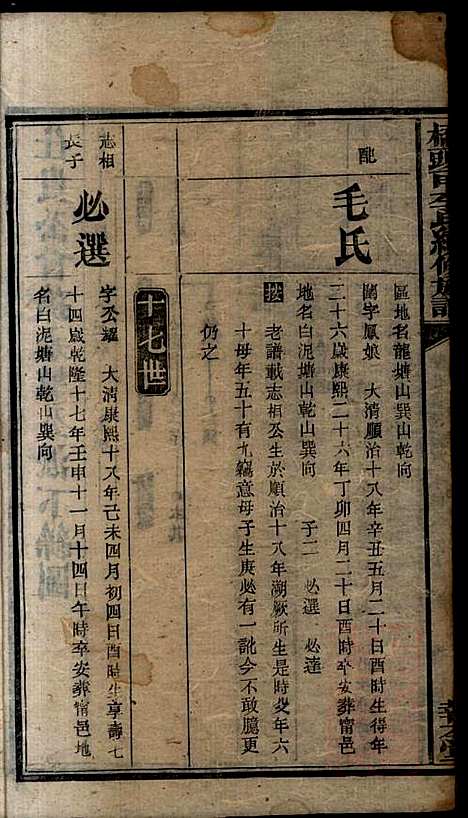 區地名龍塘山巽山乾向
配
毛氏
閨字鳳娘 大清順治十八年辛丑五月二十日酉時生得年
三十六歲康熙二十六年丁卯四月二十日酉時卒安葬甯邑
地名白泥塘山乾山巽向 子二 必選 必達
按 老譜載志相公生於順治十八年溯厥所生是時父年六
十母年五十有九竊意母子生庚必有一訛今不敢臆更
仍之
十七世
志相
長子
必選
字丕耀 大清康熙十八年己未四月初四日酉時生享壽七
十四歲乾隆十七年壬申十一月十四日午時卒安葬甯邑地
名白泥塘山乾山巽向